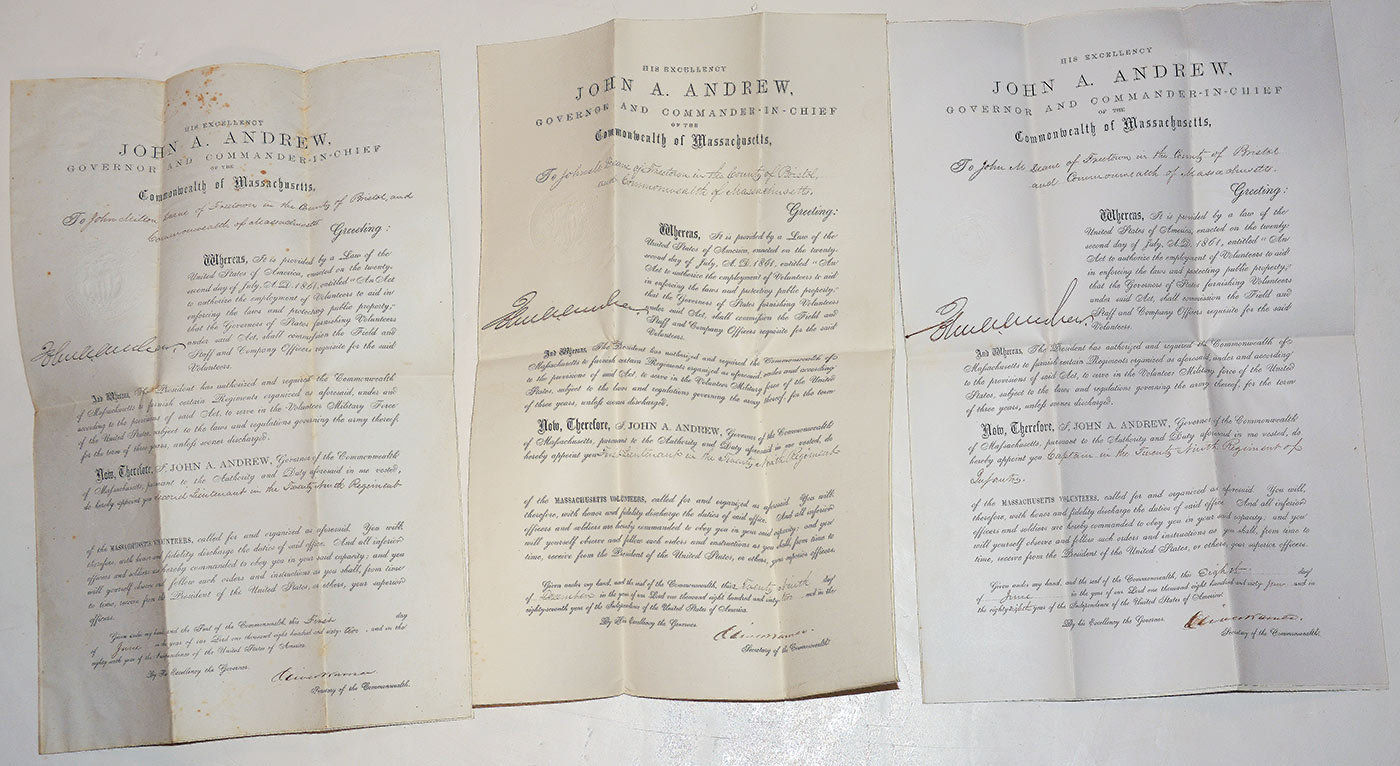 HIS EXCELLENCY
JOHN A. ANDREW,
GOVERNOR AND COMMANDER-IN-CHIEF
OF THE
Commonwealth of Massachusetts,
To John Milton Deane of Freetown in the County of Bristol, and
Commonwealth of Massachusetts
Greeting:
Whereas, It is provided by a Law of the
United States of America, enacted on the twenty-
second day of July, A.D. 1861, entitled "An Act
to authorize the employment of Volunteers to aid in
enforcing the laws and protecting public property,"
that the Governors of States furnishing Volunteers
under said Act, shall commission the Field and
Staff and Company Officers requisite for the said
Volunteers.
And Whereas, The President has authorized and required the Commonwealth
of Massachusetts to furnish certain Regiments organized as aforesaid, under and
according to the provisions of said Act, to serve in the Volunteer Military Force
of the United States, subject to the laws and regulations governing the army thereof,
for the term of three years, unless sooner discharged.
Now, Therefore, I, JOHN A. ANDREW, Governor of the Commonwealth
of Massachusetts, pursuant to the Authority and Duty aforesaid in me vested,
do hereby appoint you Second Lieutenant in the Twenty Ninth Regiment
of the MASSACHUSETTS VOLUNTEERS, called for and organized as aforesaid. You will,
therefore, with honor and fidelity discharge the duties of said office. And all inferior
officers and soldiers are hereby commanded to obey you in your said capacity; and you
will yourself observe and follow such orders and instructions as you shall, from time
to time, receive from the President of the United States, or others, your superior
officers.
Given under my hand, and the Seal of the Commonwealth, this First day
of June in the year of our Lord one thousand eight hundred and sixty two, and in the
eighty-sixth year of the Independence of the United States of America.
By His Excellency the Governor.
Secretary of the Commonwealth.
HIS EXCELLENCY
JOHN A. ANDREW,
GOVERNOR AND COMMANDER-IN-CHIEF
OF THE
Commonwealth of Massachusetts,
To John M. Deane of Freetown in the County of Bristol,
and Commonwealth of Massachusetts.
Greeting:
Whereas, It is provided by a Law of the
United States of America, enacted on the twenty-
second day of July, A.D. 1861, entitled "An
Act to authorize the employment of Volunteers to aid
in enforcing the laws and protecting public property,"
that the Governors of States furnishing Volunteers
under said Act, shall commission the Field and
Staff and Company Officers requisite for the said
Volunteers.
And Whereas, The President has authorized and required the Commonwealth of
Massachusetts to furnish certain Regiments organized as aforesaid, under and according
to the provisions of said Act, to serve in the Volunteer Military force of the United
States, subject to the laws and regulations governing the army thereof for the term
of three years, unless sooner discharged.
Now, Therefore, I, JOHN A. ANDREW, Governor of the Commonwealth
of Massachusetts, pursuant to the Authority and Duty aforesaid in me vested, do
hereby appoint you First Lieutenant in the Twenty Ninth Regiment
of the MASSACHUSETTS VOLUNTEERS, called for and organized as aforesaid. You will
therefore, with honor and fidelity discharge the duties of said office. And all inferior
officers and soldiers are hereby commanded to obey you in your said capacity; and you
will yourself observe and follow such orders and instructions as you shall, from time to
time, receive from the President of the United States, or others, your superior officers.
Given under my hand, and the seal of the Commonwealth, this Twenty Ninth day
of December in the year of our Lord one thousand eight hundred and sixty two and in the
eighty-seventh year of the Independence of the United States of America.
By His Excellency the Governor.
Secretary of the Commonwealth.
HIS EXCELLENCY
JOHN A. ANDREW,
GOVERNOR AND COMMANDER-IN-CHIEF
OF THE
Commonwealth of Massachusetts,
To John M. Deane of Freetown in the County of Bristol
and Commonwealth of Massachusetts.
Greeting:
Whereas, It is provided by a law of the
United States of America, enacted on the twenty-
second day of July, A.D. 1861, entitled "An
Act to authorize the employment of Volunteers to aid
in enforcing the laws and protecting public property,"
that the Governors of States furnishing Volunteers
under said Act, shall commission the Field and
Staff and Company Officers requisite for the said
Volunteers.
And Whereas, The President has authorized and required the Commonwealth of
Massachusetts to furnish certain Regiments organized as aforesaid, under and according
to the provisions of said Act, to serve in the Volunteer Military force of the United
States, subject to the laws and regulations governing the army thereof, for the term
of three years, unless sooner discharged.
Now, Therefore, I, JOHN A. ANDREW, Governor of the Commonwealth
of Massachusetts, pursuant to the Authority and Duty aforesaid in me vested, do
hereby appoint you Captain in the Twenty Ninth Regiment of
Infantry.
of the MASSACHUSETTS VOLUNTEERS, called for and organized as aforesaid. You will,
therefore, with honor and fidelity discharge the duties of said office. And all inferior
officers and soldiers are hereby commanded to obey you in your said capacity; and you
will yourself observe and follow such orders and instructions as you shall, from time to
time, receive from the President of the United States, or others, your superior officers.
Given under my hand, and the seal of the Commonwealth, this Eighth day
of June in the year of our Lord one thousand eight hundred and sixty four and in
the eighty eighth year of the Independence of the United States of America.
By his Excellency the Governor.
Secretary of the Commonwealth.